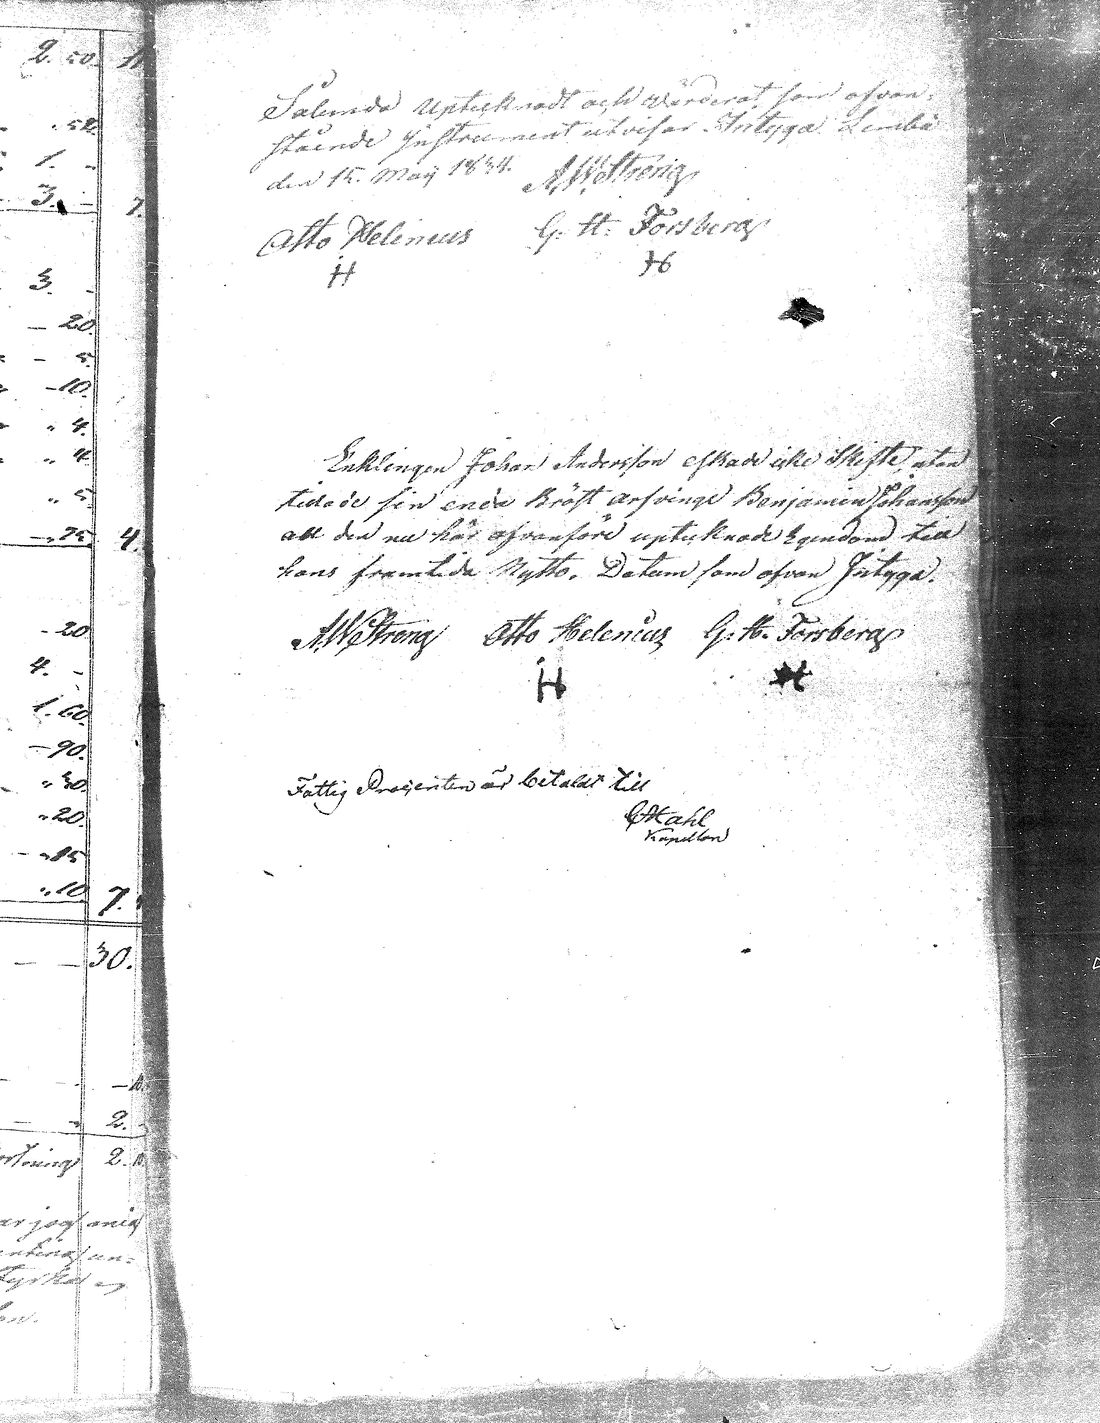 2. 50. 11
. 52.
1. -
3. - 7.
3. -
- 20.
- 5.
- 10.
" 4.
" 4.
" 5.
- 25. 4.
- 20.
4. -
1. 60.
- 90.
" 30.
" 20.
- " 15
" 10. 7.
- - 30.
- 10.
- " 2. -
2. 10.
Sålunda Uptecknadt och Värderat, som ofvan-
stående Instrument utvisar. Intyga Lembå
den 15. Maij 1834. A.W. Streng
Otto Helenius G. H. Forsberg
H H
Enklingen Johan Andersson eskade icke Skifte, utan
sin enda Bröst arfvinge Benjamin Johansson
all den nu här ofvanföre uptecknade Egendom till
hans framtida Nytto. Datum som ofvan Intyga.
A.W. Streng Otto Helenius G. H. Forsberg
H H
Fattig Procenten är betaldt till
G Stahl
Kapellan